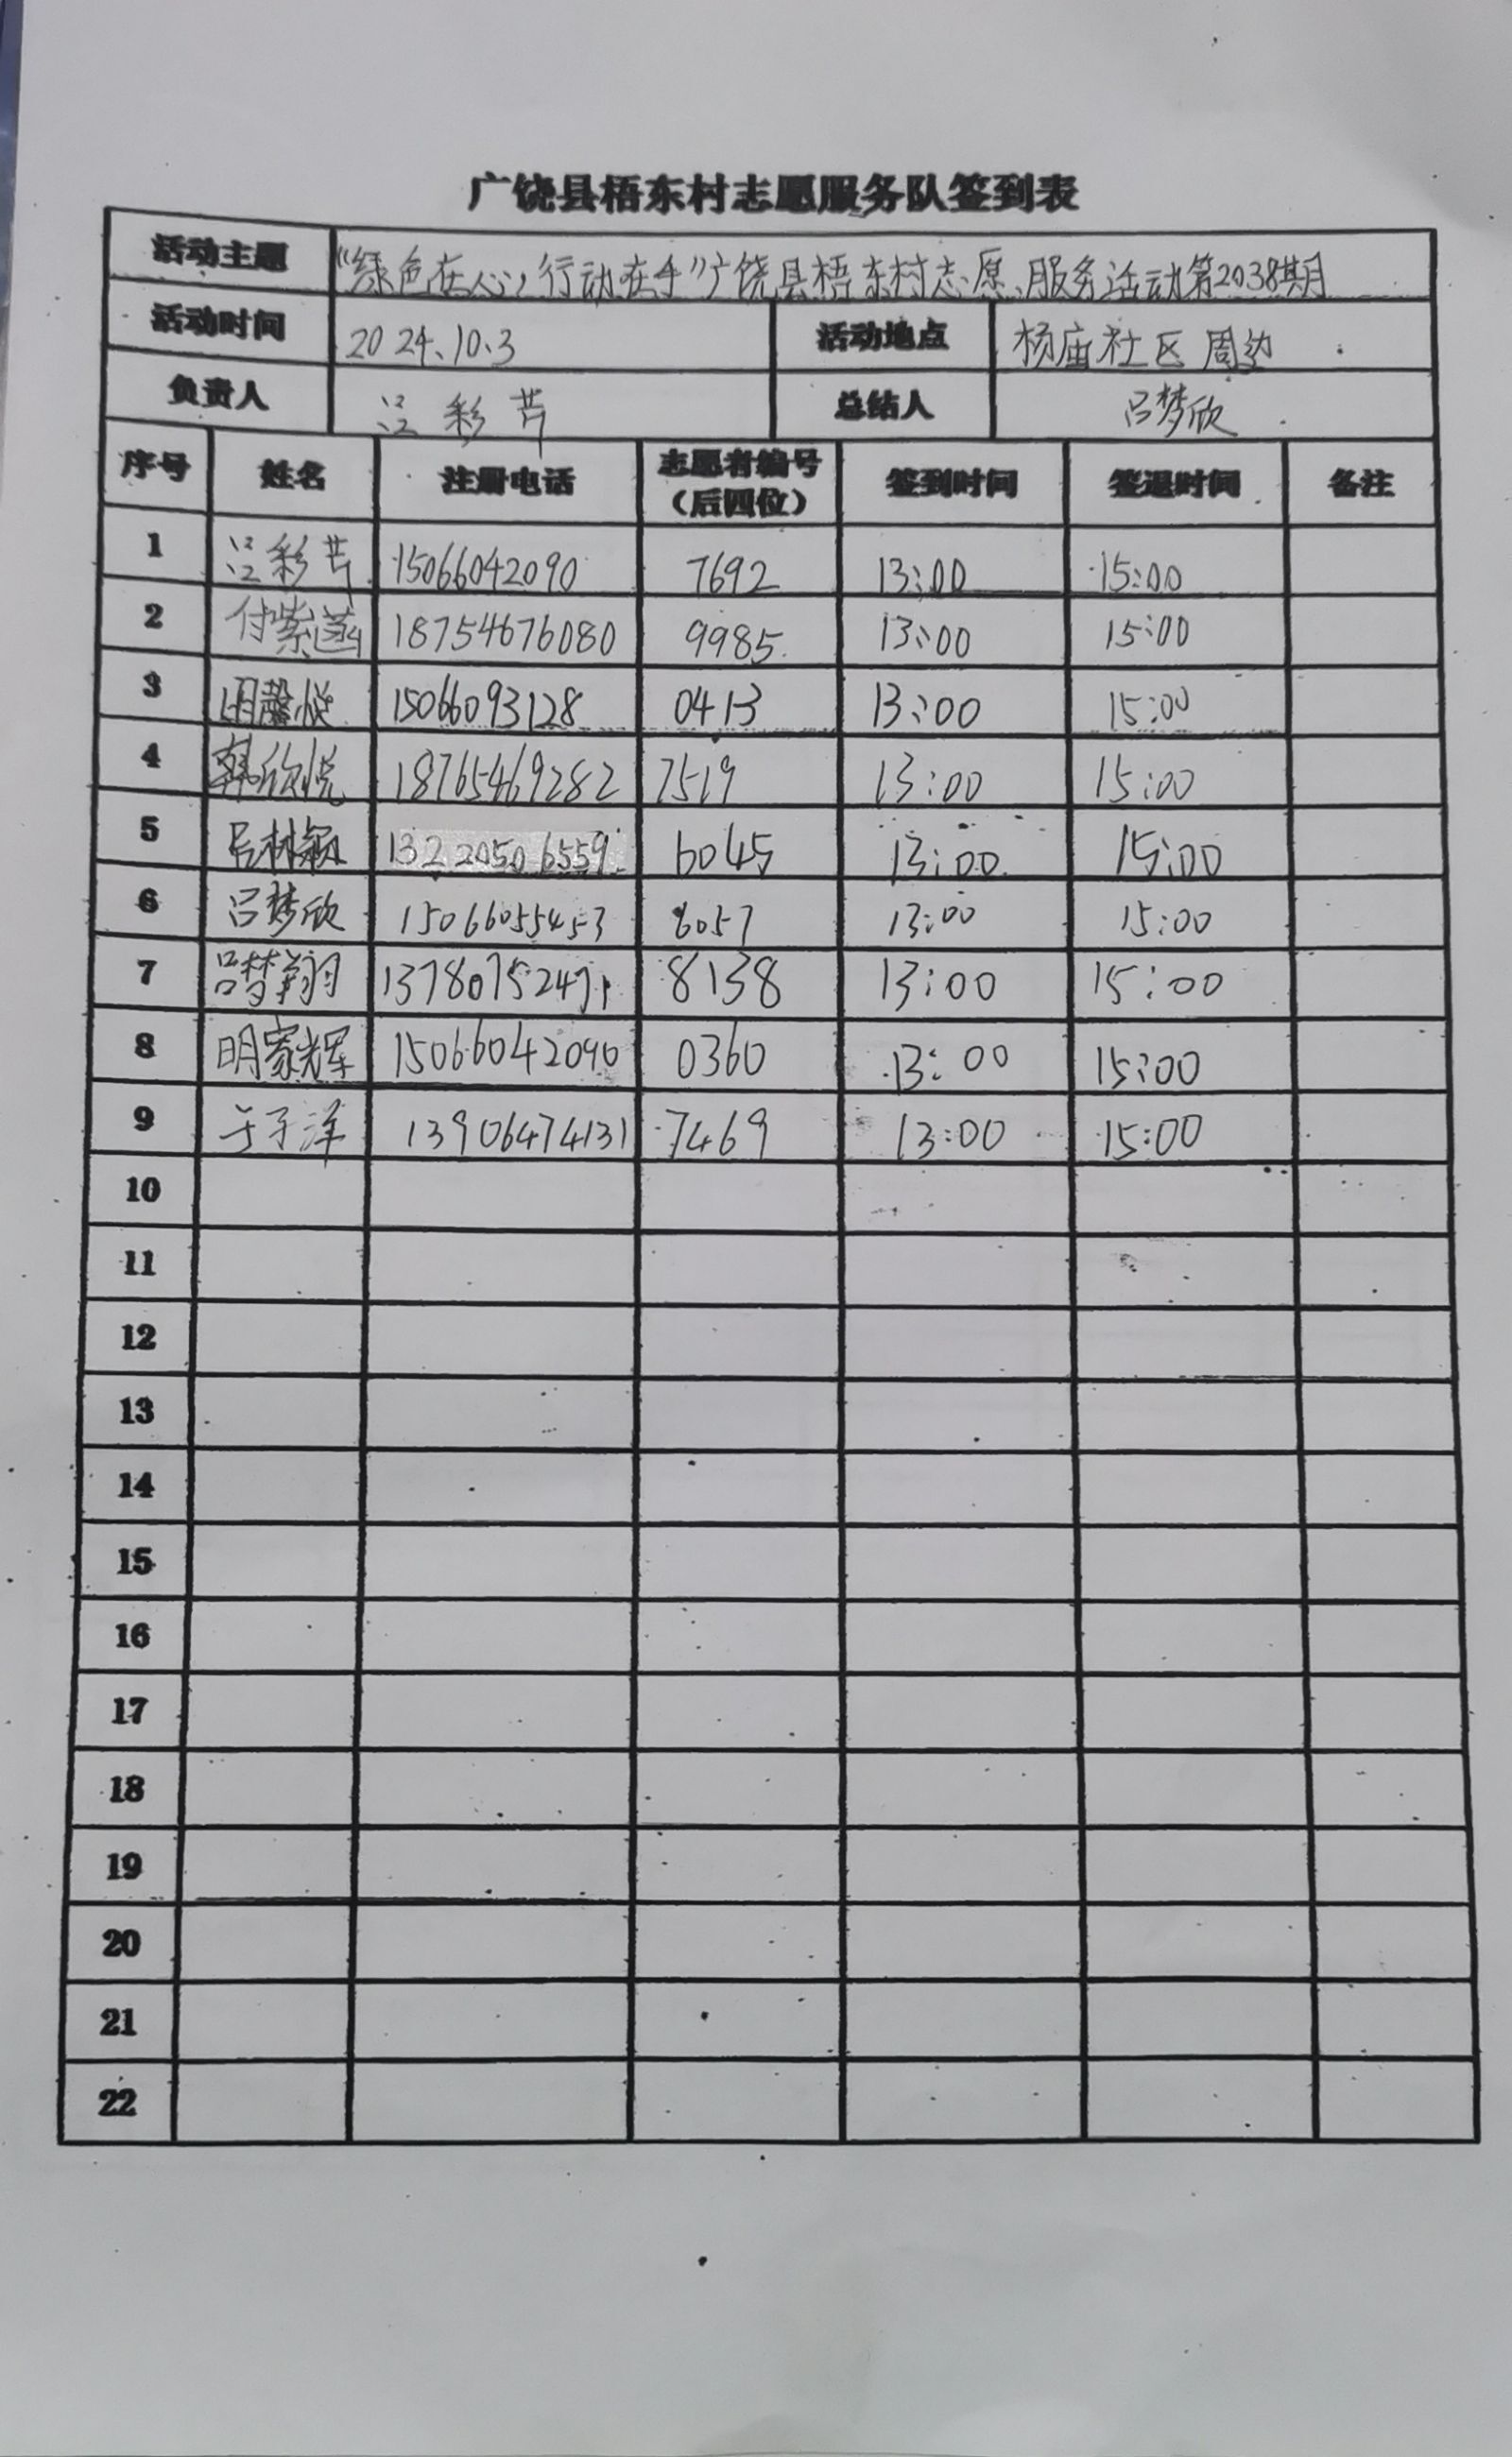 广饶县梧东村志愿服务队签到表
活动主题 “绿色在心，行动在手”广饶县梧东村志愿服务活动第2038期
活动时间 2024.10.3 活动地点 杨庙社区周边
负责人 彩芹 总结人 吕梦欣
序号 姓名 注册电话 志愿者编号（后四位） 签到时间 签退时间 备注
1 彩芹 15066042090 7692 13:00 15:00
2 付紫菡 18754676080 9985 13:00 15:00
3 明馨悦 15066093128 0413 13:00 15:00
4 韩欣悦 18765469282 7519 13:00 15:00
5 吕林颖 13220506559 6045 13:00 15:00
6 吕梦欣 15066055453 6057 13:00 15:00
7 吕梦翔 13780752471 8138 13:00 15:00
8 明家辉 15066042090 0360 13:00 15:00
9 于子洋 13906474131 7469 13:00 15:00
10
11
12
13
14
15
16
17
18
19
20
21
22